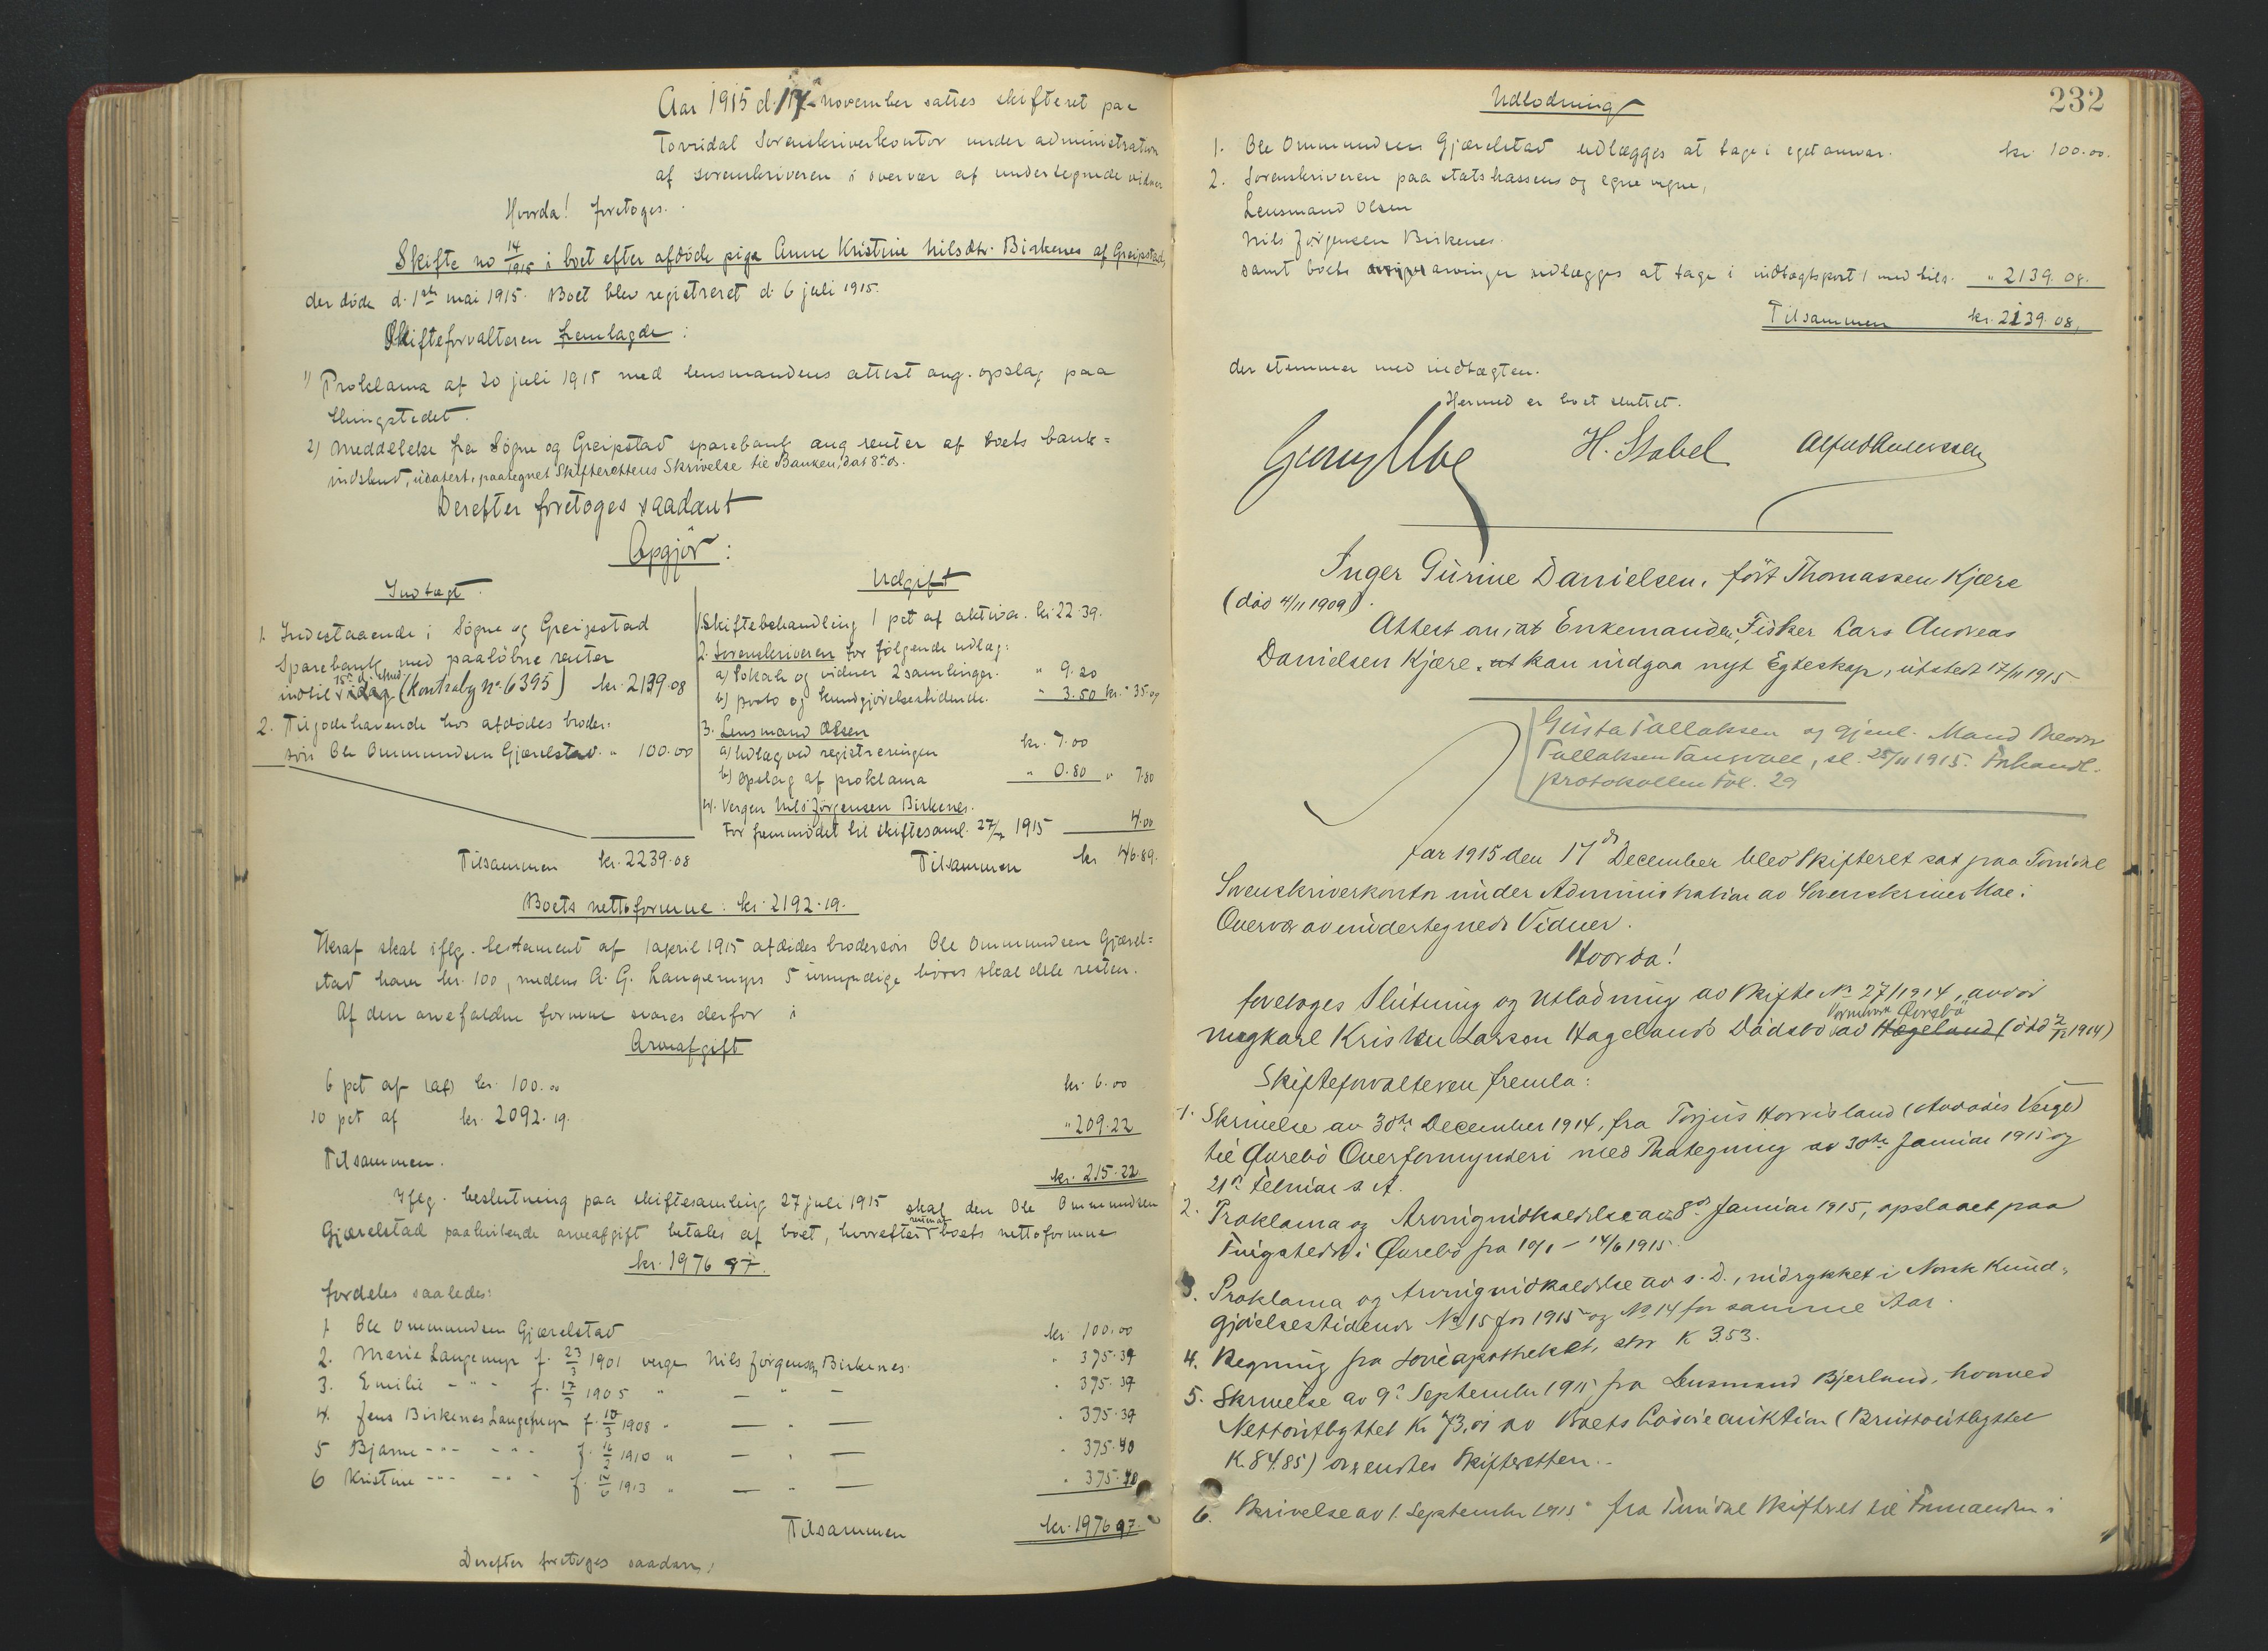 Aar 1915 d. 17 november sattes skifteret paa
Torridal Sorenskriverkontor under administration
af sorenskriveren i overvær af undertegnede vidner
Hvorda! foretoges.
Skifte no 14/1915 i boet efter afdøde pige Anne Kristine Nilsdtr. Birkenes af Greipstad,
der døde d. 1ste mai 1915. Boet blev registreret d. 6 juli 1915.
Skifteforvalteren fremlagde:
1) Proklama af 20 juli 1915 med lensmandens attest ang. opslag paa
thingstedet.
2) Meddelelse fra Søgne og Greipstad sparebank ang renter af boets bank=
indskud, udatert, paategnet Skifterettens Skrivelse til Banken, dat 8de ds.
Derefter foretoges saadant
Opgjør:
Indtægt.
1. Indestaaende i Søgne og Greipstad
Sparebank med paaløbne renter
15de d. mnd.
indtil idag (Kontrabg No. 6395) kr. 2139.08
2. Tilgodehavende hos afdødes broder=
søn Ole Ommundsen Gjærelstad. " 100.00
Tilsammen kr. 2239.08
Udgift
1. Skiftebehandling 1 pct af aktiva. kr. 22.39.
2. Sorenskriveren for følgende udlæg:
a) Lokale og vidner 2 samlinger. " 9.20
b) porto og kundgjørelsestidende. " 3.50 kr. 35.09
3. Lensmand Olsen
a) Udlæg ved registreringen kr. 7.00
b) Opslag af proklama " 0.80 " 7.80
4. Vergen Nils Jørgensen Birkenes.
For fremmødet til skiftesaml. 27/7 1915 4.00
Tilsammen kr 46.89.
Boets nettoformue: kr. 2192.19.
Heraf skal iflg. testament af 1 april 1915 afdødes brodersøn Ole Ommundsen Gjærel=
stad have kr. 100, medens A. G. Langemyrs 5 umyndige børn skal dele resten.
Af den arvefaldne formue svares derfor i
Arveafgift
6 pct af (af) kr. 100.00 kr. 6.00
10 pct af kr. 2092.19. " 209.22
Tilsammen. kr. 215.22
Iflg. beslutning paa skiftesamling 27 juli 1915 skal den Ole Ommundsen
Gjærelstad paahvilende arveafgift betales af boet, hvorefter boets nettoformue
kr. 1976 97.
fordeles saaledes:
1 Ole Ommundsen Gjærelstad kr. 100.00
2. Marie Langemyr f. 23/3 1901 verge Nils Jørgensen Birkenes. " 375.39
3. Emilie - " - f. 17/7 1905 " — " — " 375.39
4. Jens Birkenes Langemyr f. 10/3 1908 " — " — " 375.39
5 Bjarne - " - - " - f. 16/2 1910 " — " — " 375.40
6 Kristine - " - - " - f. 12/6 1913 " — " — " 375.40
Tilsammen kr. 1976 97.
Derefter foretoges saadan:
232
Udlodning
1. Ole Ommundsen Gjærelstad udlægges at tage i eget ansvar. kr. 100.00.
2. Sorenskriveren paa statskassens og egne vegne,
Lensmand Olsen
Nils Jørgensen Birkenes.
samt boets arvinger udlægges at tage i indtægtspost 1 med tils. " 2139.08.
Tilsammen kr. 2239.08,
der stemmer med indtægten.
Hermed er boet sluttet.
H. Stabel Alfred Anderssen
Inger Gurine Danielsen, født Thomassen Kjære
(død 4/11 1909).
Attest om, at Enkemanden, Fisker Lars Andreas
Danielsen Kjære, at kan indgaa nyt Egteskap, utstedt 17/11 1915
Gusta Tallaksen og gjenl. Mand Theodor
Tallaksen Tangvall, sl. 25/11 1915. Forhandl.
protokollen Fol. 29
Aar 1915 den 17de December blev Skifteret sat paa Torridal
Sorenskriverkontor under Administration av Sorenskriver Moe i
Overvær av undertegnede Vidner.
Hvorda!
foretoges Slutning og Utlodning av Skifte No 27/1914, avdøde
ungkarl Kristen Larson Hagelands Dødsbo av Hægeland (død 2/12 1914)
Skifteforvalteren fremla:
1. Skrivelse av 30te December 1914, fra Torjus Horrisland (Avdødes Verge)
til Øvrebø Overformynderi med Paategning av 30te Januar 1915 og
21de Februar s. A.
2. Proklama og Arvingindkaldelse av 8de Januar 1915, opslaaet paa
Tingstedet i Øvrebø fra 10/1 – 14/6 1915.
3. Proklama og Arvingindkaldelse av s. D., indrykket i Norsk Kund-
gjørelsestidende No 15 for 1915 og No 14 for samme Aar.
4. Regning fra Løveapotheket, stor K 3.53.
5. Skrivelse av 9de September 1915 fra Lensmand Bjerland, hvorved
Nettoutbyttet K. 73,01 av Boets Løsøreauktion (Bruttoutbyttet
K. 84.85) oversendtes Skifteretten.
6. Skrivelse av 1. September 1915 fra Torridal Skifteret til Formanden i